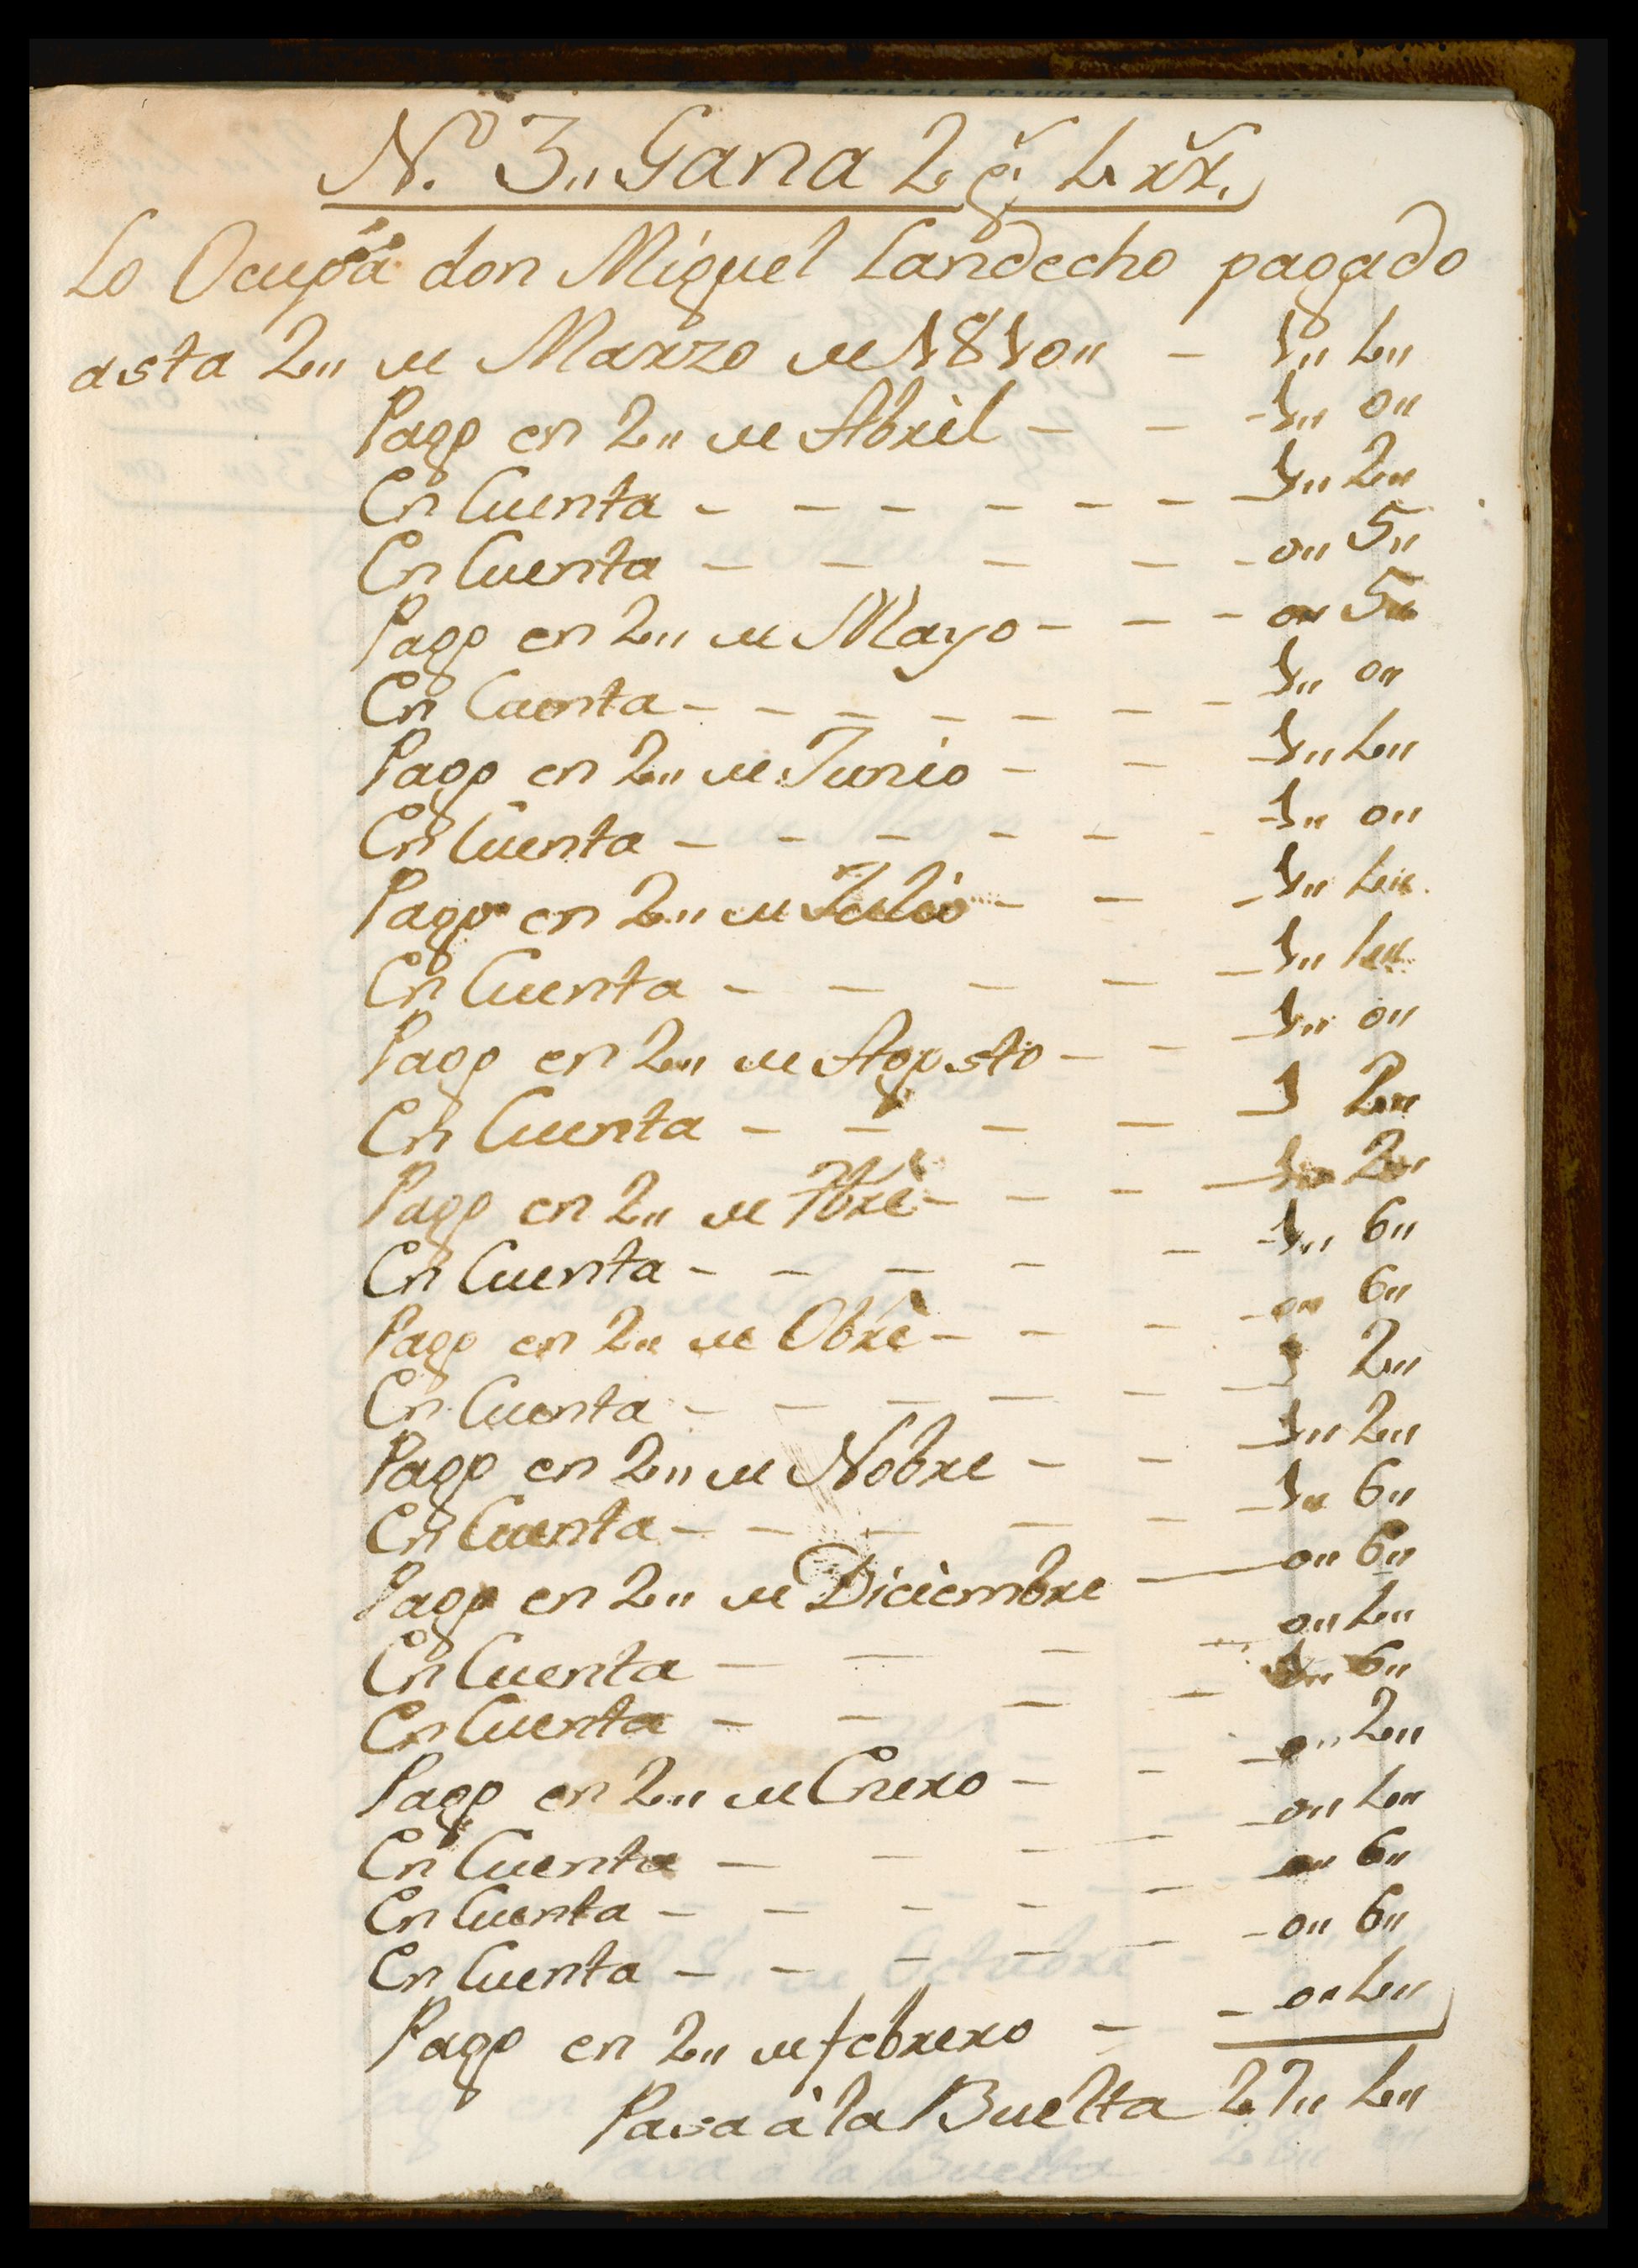 N.º 3,, Gana 2 p.ˢ 4 rr.ˢ
Lo Ocupa don Miguel Landecho pagado
asta 2,, de Marzo de 1810,, - 1,, 4,,
Pago en 2,, de Abril - - - 1,, 0,,
En Cuenta - - - - - - - 1,, 2,,
En Cuenta - - - - - 0,, 5,,
Pago en 2,, de Mayo - - - 0,, 5,,
En Cuenta - - - - - - - 1,, 0,,
Pago en 2,, de Junio - - - 1,, 4,,
En Cuenta - - - - - - - 1,, 0,,
Pago en 2,, de Julio - - - 1,, 4,,
En Cuenta - - - - - 1,, 4,,
Pago en 2,, de Agosto - - - 1,, 0,,
En Cuenta - - - - - 1 2,,
Pago en 2,, de 7brè - - - - 1,, 2,,
En Cuenta - - - - - - 1,, 6,,
Pago en 2,, de Obrè - - - - 0,, 6,,
En Cuenta - - - - - - 1 2,,
Pago en 2,, de Nobre - - - 1,, 2,,
En Cuenta - - - - - - 1,, 6,,
Pago en 2,, de Diciembre - 0,, 6,,
En Cuenta - - - - 0,, 4,,
En Cuenta - - - - 1,, 6,,
Pago en 2,, de Enero - - - 0,, 2,,
En Cuenta - - - - - 0,, 4,,
En Cuenta - - - - - - 0,, 6,,
En Cuenta - - - - - - 0,, 6,,
Pago en 2,, de febrero - - 0,, 4,,
Pasa à la Buelta 27,, 4,,